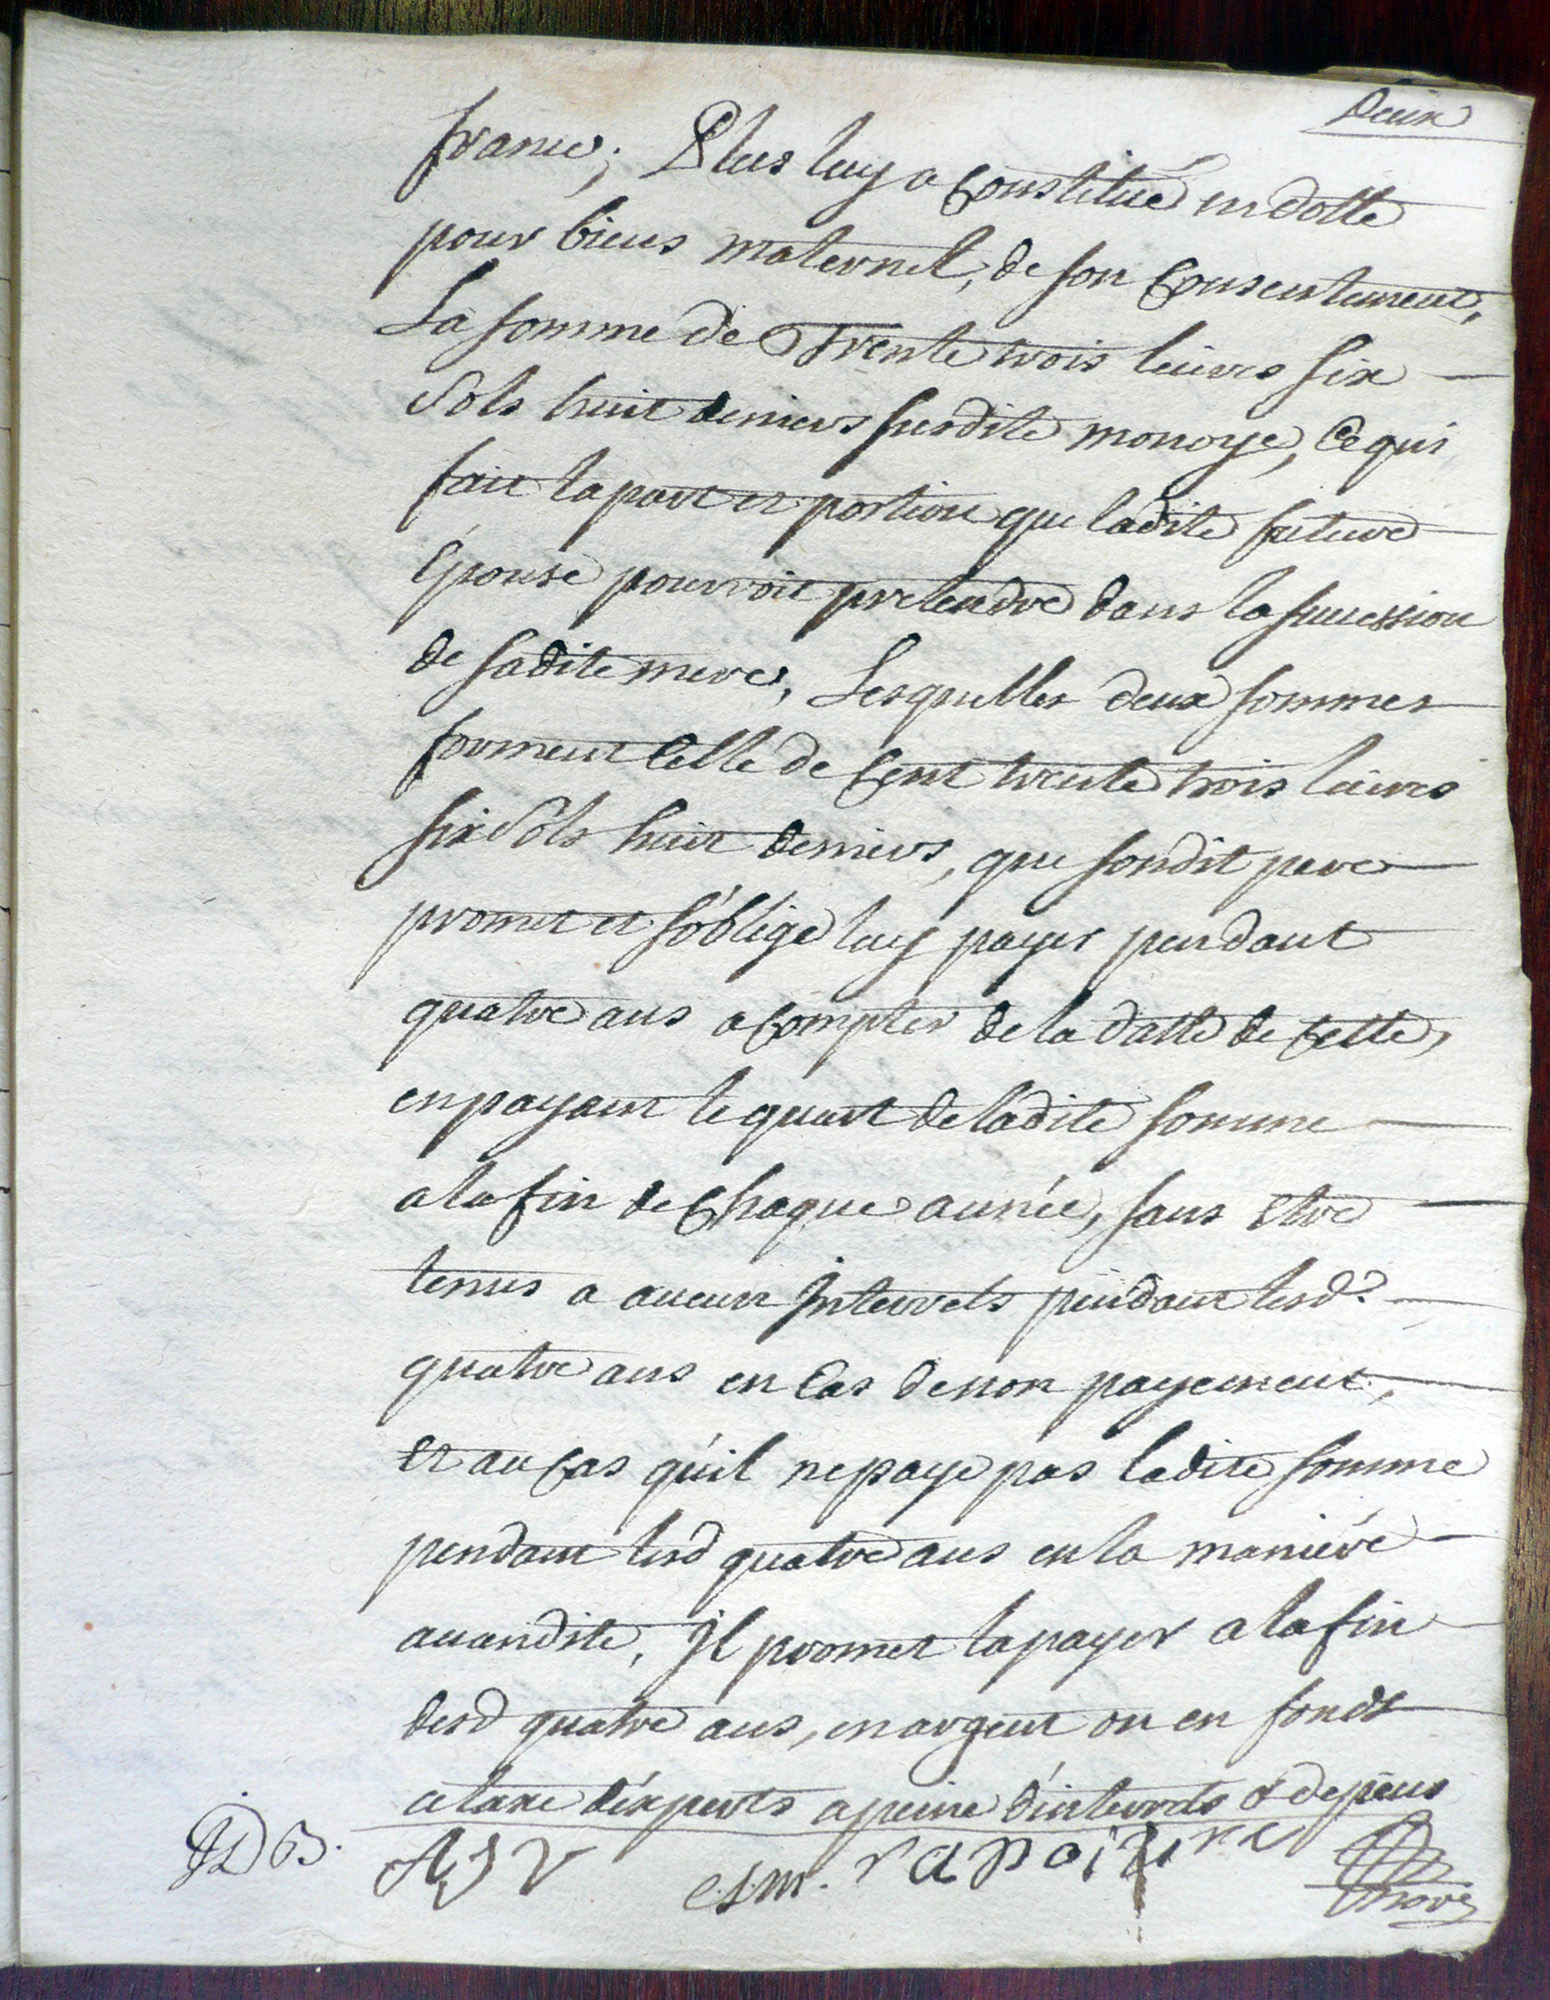 Deux
france; Plus luy a Constitué en dotte
pour biens maternel, de son Consentement,
La somme de Trente trois livres six
Sols huit deniers susdite monoye, Ce qui
fait la part et portion que ladite future
Epouse pourroit pretendre dans la succession
de sadite mere, Lesquelles deux sommes
forment Celle de Cent trente trois livres
six Sols huit deniers, que sondit pere
promet et s'oblige luy payer pendant
quatre ans a Compter de la datte de Cette,
en payant le quart de ladite somme
a la fin de Chaque année, sans Etre
tenus a aucun Interrets pendant lesd.
quatre ans en Cas de non payement,
Et au Cas qu'il ne paye pas ladite somme
pendant lesd quatre ans en la maniére
auandite, Il promet la payer a la fin
desd quatre ans, en argent ou en fonds
a taxe d'éxperts a peine d'interets & depens